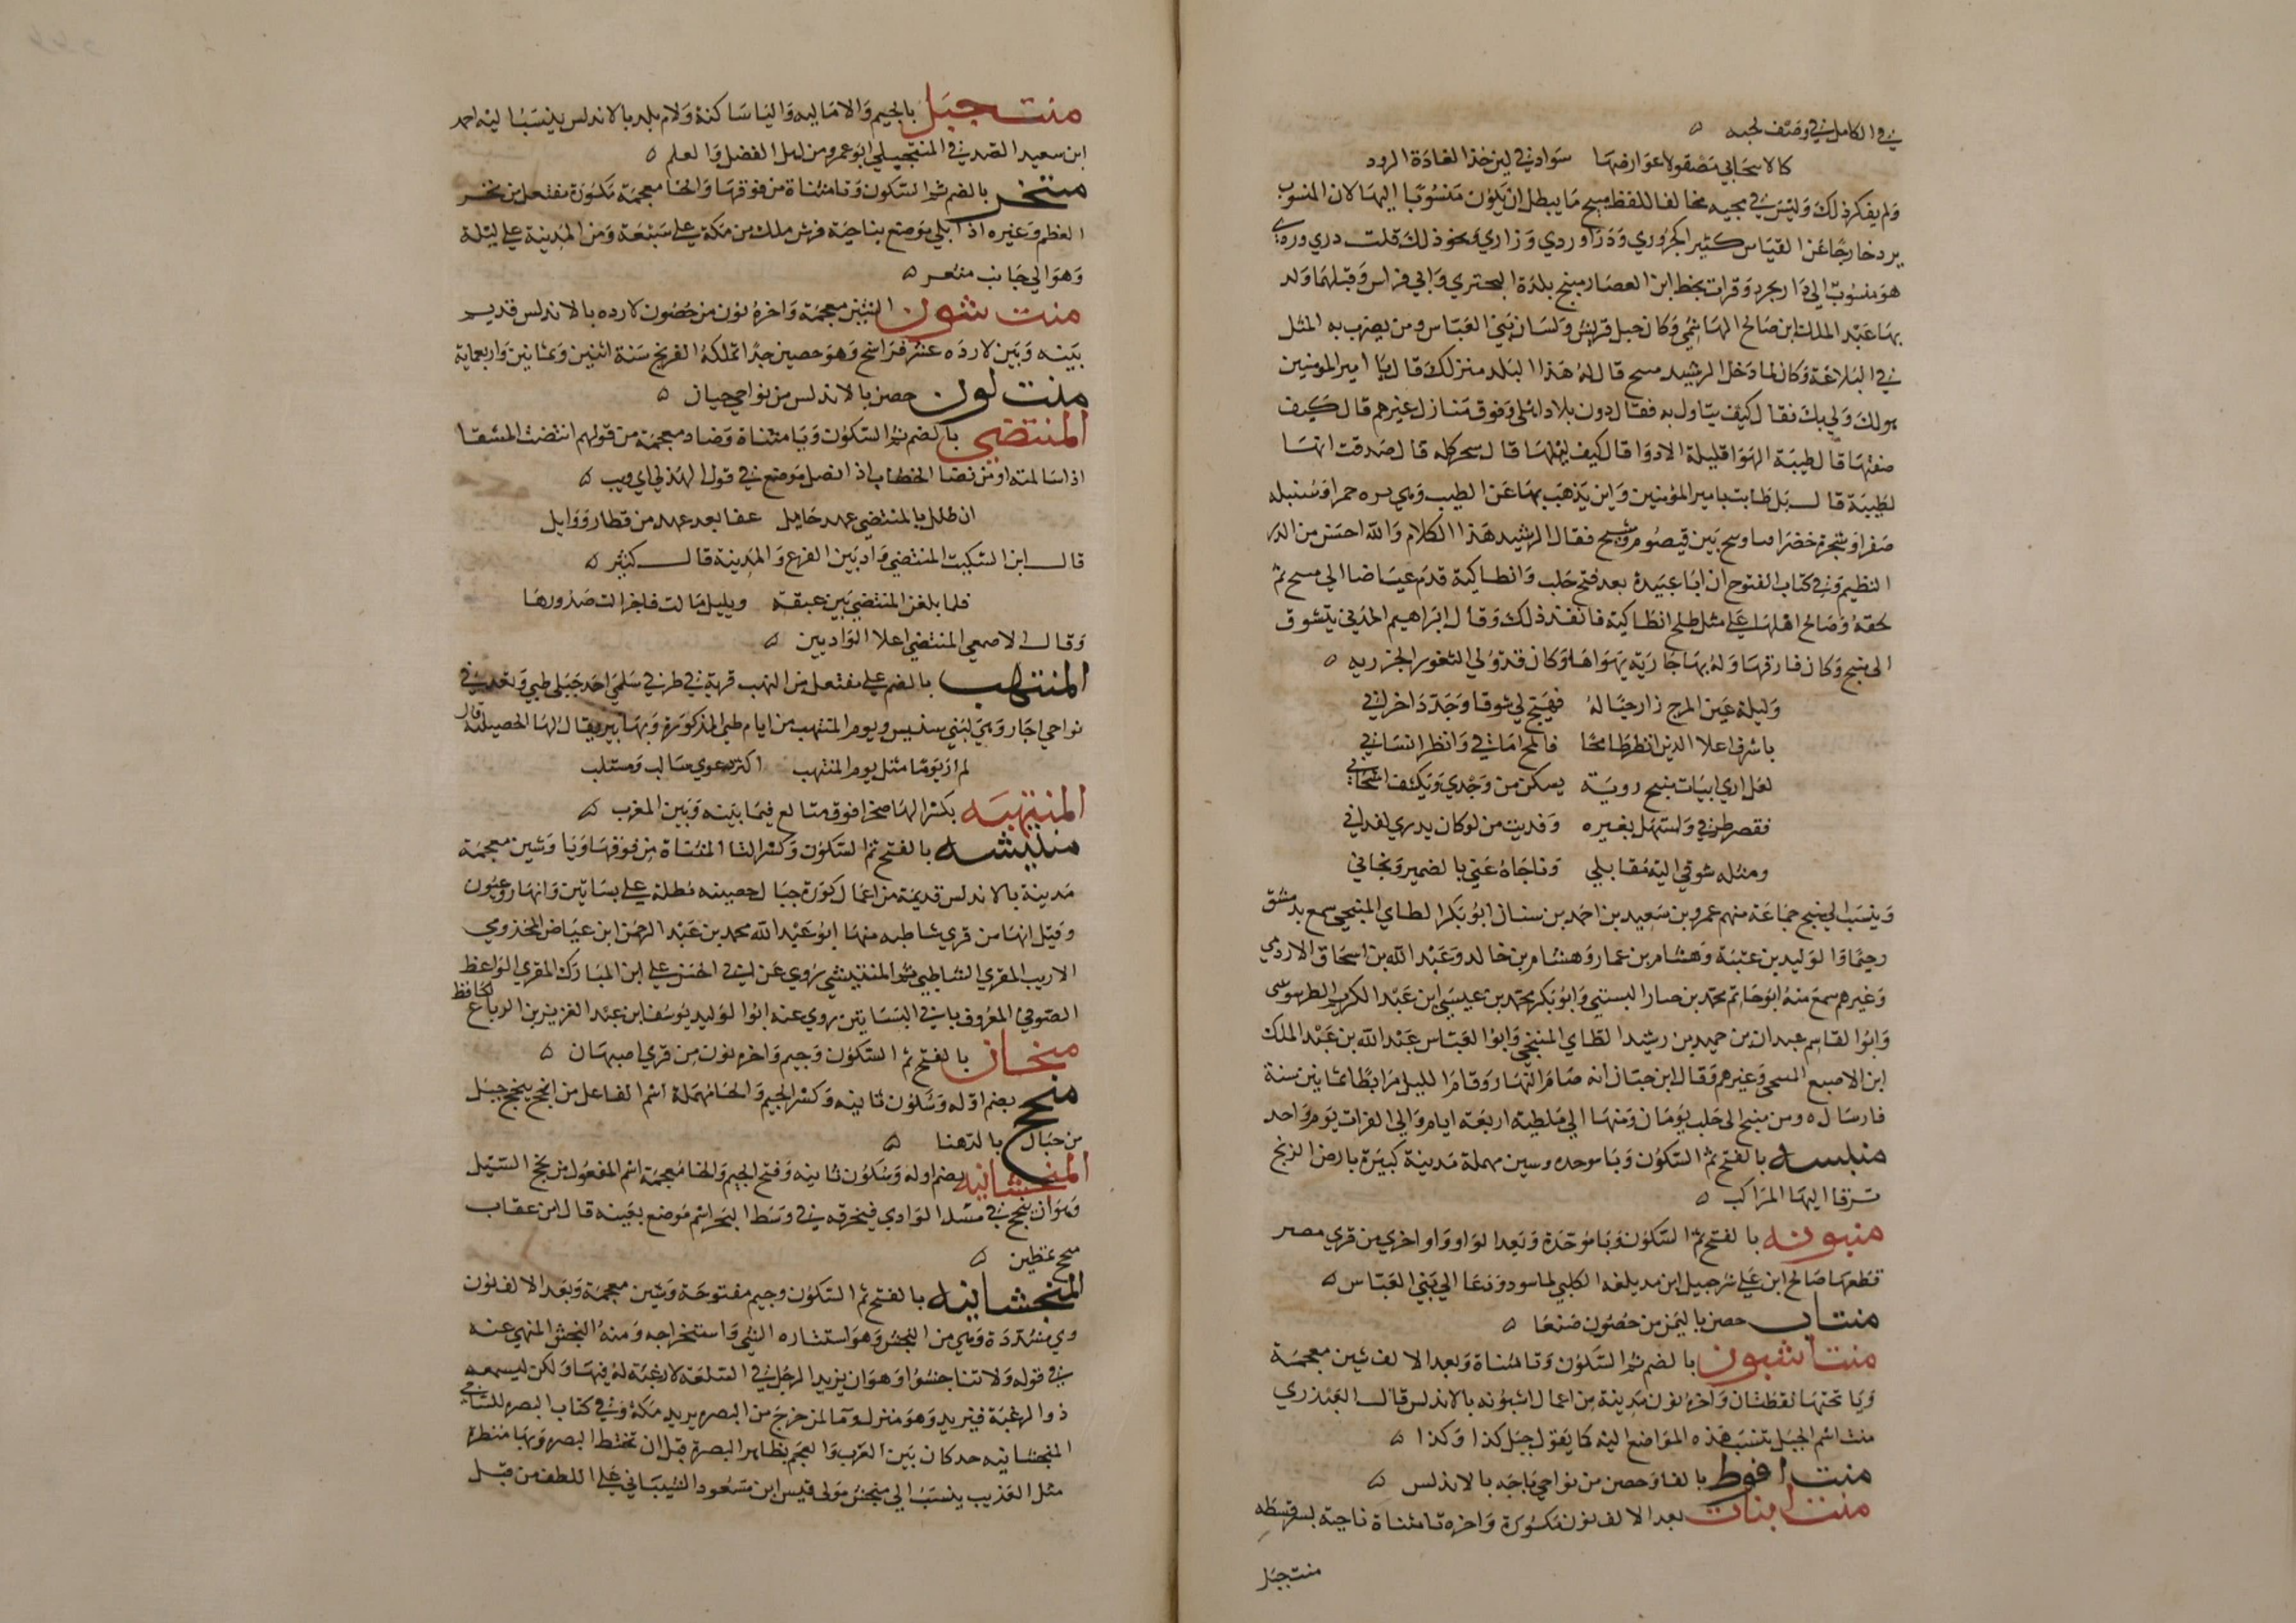 في الكامل في وصف لحيه
كالاسحابي مصقولا عوارضها سوادها في لين خذ الغادة الرود
ولم ينكر ذلك وليس في مجيه مخالفا للفظ منبج ما يبطل ان يكون منسوبا اليها لان المنسوب
يرد خارجا عن القياس كثيرا كمروزي ودراوردي ورازي ونحو ذلك قلت دراوردي
هو منسوب الي دارابجرد وقرات بخط ابن العصار منبج بلدة البحتري وابي فراس وقبلهما ولد
بها عبد الملك ابن صالح الهاشمي وكان جبل قريش ولسان بني العباس ومن يضرب به المثل
في البلاغة وكان لما دخل الرشيد منبج قال له هذا البلد منزلك قال يا امير المومنين
هو لك ولي بك فقال كيف بناوك به فقال دون بلاد اهلي وفوق منازل غيرهم قال كيف
صفتها قال طيبة الهوا قليلة الادوا قال كيف ليلها قال سحر كله قال صدقت انها
لطيبة قال بل طابت بامير المؤمنين واين يذهب بها عن الطيب وهي بره حمرا وسنبله
صفرا وشجرة خضرا فيافي فيح بين قيصوم وشيح فقال الرشيد هذا الكلام والله احسن من الدر
النظيم وفي كتاب الفتوح ان ابا عبيدة بعد فتح حلب وانطاكية قدم عياضا الي منبج ثم
لحقه وصالح اهلها علي مثل صلح انطاكية فانفذ ذلك وقال ابراهيم المدني يتشوق
الي منبج وكان فارقها وله بها جارية يهواها وكان قد ولي الثغور الجزريه
وليلة عين المرج زار خياله فهيج لي شوقا وجدد احزاني
باشرف اعلا الدير انظر طامحا فالمح اماقي وانظر انساني
لعل اري ابيات منبج روية يسكن من وجدي ويكشف اشجاني
فقصر طرفي واستهل بغيره وفديت من لو كان يدري لفداني
ومثله شوقي اليه مقابلي وناجاه عني بالضمير وناجاني
وينسب الي منبج جماعة منهم عمرو بن سعيد بن احمد بن سنان ابو بكر الطاي المنبجي سمع بدمشق
رحيما والوليد بن عتبة وهشام بن عمار وهشام بن خالد وعبد الله بن اسحاق الاردمي
وغيرهم سمع منه ابو حاتم محمد بن حبان البستي وابو بكر محمد بن عيسي ابن عبد الكريم الطرسوسي
وابو القاسم عبدان بن حميد بن رشيد الطاي المنبجي وابو العباس عبد الله بن عبد الملك
ابن الاصبغ المنبجي وغيرهم وقال ابن حبان انه صام النهار وقام الليل مرابطا ثمانين سنة
فارساله ومن منبج الي حلب يومان ومنها الي ملطية اربعة ايام والي الفرات يوم واحد
منبسه بالفتح ثم السكون وبا موحده وسين مهملة مدينة كبيرة بارض الزنج
ترفا اليها المراكب
منبونه بالفتح ثم السكون وبا موحدة وبعد الواو واو اخري من قري مصر
قطعها صالح ابن علي شرحبيل ابن مديلفه الكلبي لما سود ودعا الي بني العباس
منتاب حصن باليمن من حصون صنعا
منتاشيون بالضم ثم السكون وتا مثناة وبعد الالف شين معجمة
ويا تحتها نقطتان واخره نون مدينة من اعمال اشبونه بالاندلس قال العبدري
منت اسم الجبل تنسب هذه المواضع اليه كما يقول جبل كذا وكذا
منت افوط بالفا وحصن من نواحي باجه بالاندلس
منت اينات بعد الالف نون مكسورة واخره تا مثناة ناحية بسرقسطه
منت جبل
منت جبل بالجيم والامالة واليا ساكنة ولام بلد بالاندلس ينسب اليه احمد
ابن سعيد الصدفي المنتجيلي ابو عمر ومن اهل الفضل والعلم
منتخر بالضم ثم السكون وتا مثناة من فوقها والخا معجمة مكسورة مفتعل من نخر
العظم وغيره اذا بلي موضع بناحية فرش ملل من مكة علي سبعة ومن المدينة علي ليلة
وهو الي جانب مثعر
منت شون الشين معجمة واخره نون من حصون لارده بالاندلس قديم
بينه وبين لارده عشرة فراسخ وهو حصين جدا تملكه الفرنج سنة اثنين وثمانين واربعماية
منت لون حصن بالاندلس من نواحي جيان
المنتضي بالضم ثم السكون وبا مثناة وضاد معجمة من قولهم انتضيت السيف
اذا سللته او من نضا الخضاب اذا نصل موضع في قول الهذلي ابي ذويب
لمن طلل بالمنتضي عهد حايل عفا بعد عهد من قطار ووابل
قال ابن السكيت المنتضي واد بين الفرع والمدينة قال كثير
فلما بلغن المنتضي بين عبقة ويليل مالت فاحزالت صدورها
وقال الاصمعي المنتضي اعلا الواديين
المنتهب بالضم علي مفتعل من النهب قرية في طرف سلمي احد جبلي طي وتعد في
نواحي اجا وهي لبني سنبس ويوم المنتهب من ايام طي المذكورة وبها بير يقال لها الحصيلة قال
لم ار يوما مثل يوم المنتهب اكثر دعوي سالب ومستلب
المنتهبه بكسر الها صخرا فوق متالع فيما بينه وبين المغرب
منتيشه بالفتح ثم السكون وكسر التا المثناة من فوقها ويا وشين معجمة
مدينة بالاندلس قديمة من اعمال كورة جيان حصينه مطلة علي بساتين وانهار وعيون
وقيل انها من قري شاطبه منها ابو عبد الله محمد بن عبد الرحمن ابن عياض المخذومي
الاديب المقري الشاطبي ثم المنتيشي يروي عن ابي الحسن علي ابن المبارك المقري الواعظ
الصوفي المعروف بابي البساتين روي عنه ابو الوليد يوسف ابن عبد العزيز بن الدباغ الحافظ
منجان بالفتح ثم السكون وجيم واخره نون من قري اصبهان
منجح بضم اوله وسكون ثانيه وكسر الجيم والحا مهملة اسم الفاعل من انجح ينجح جبل
من جبال بالدهنا
المنخشانيه بضم اوله وسكون ثانيه وفتح الجيم والخا معجمة اسم المفعول من نجخ السيل
وهو ان ينجخ في سند الوادي فيخرقه في وسط البحر اسم موضع بعينه قال ابن عقاب
منجخ عظين
المنجشانيه بالفتح ثم السكون وجيم مفتوحة وشين معجمة وبعد الالف نون
ويا مشددة وهي من النجش وهو استثاره الشي واستخراجه ومنه النجش المنهي عنه
في قوله ولا تناجشوا وهو ان يزيد الرجل في السلعة لا رغبة له فيها ولكن ليسمعه
ذو الرغبة فيزيد وهو منزل وما لمن خرج من البصره يريد مكة وفي كتاب البصره للساجي
المنجشانيه حد كان بين العرب والعجم بظاهر البصرة قبل ان تختط البصره وبها منظرة
مثل العذيب ينسب الي منجش مولي قيس ابن مسعود الشيباني علي اللطف من قبل